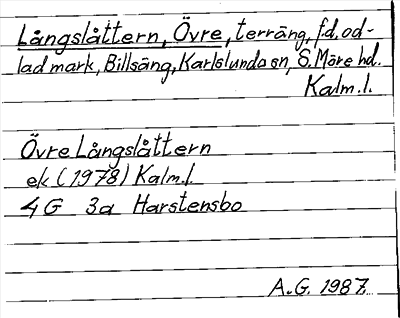 Långslåttern, Övre, terräng, f.d. od-
lad mark, Billsäng, Karlslunda sn, S. Möre hd.
Kalm.l.
Övre Långslåttern
ek (1978) Kalm.l.
4G 3a Harstensbo
A.G. 1987.